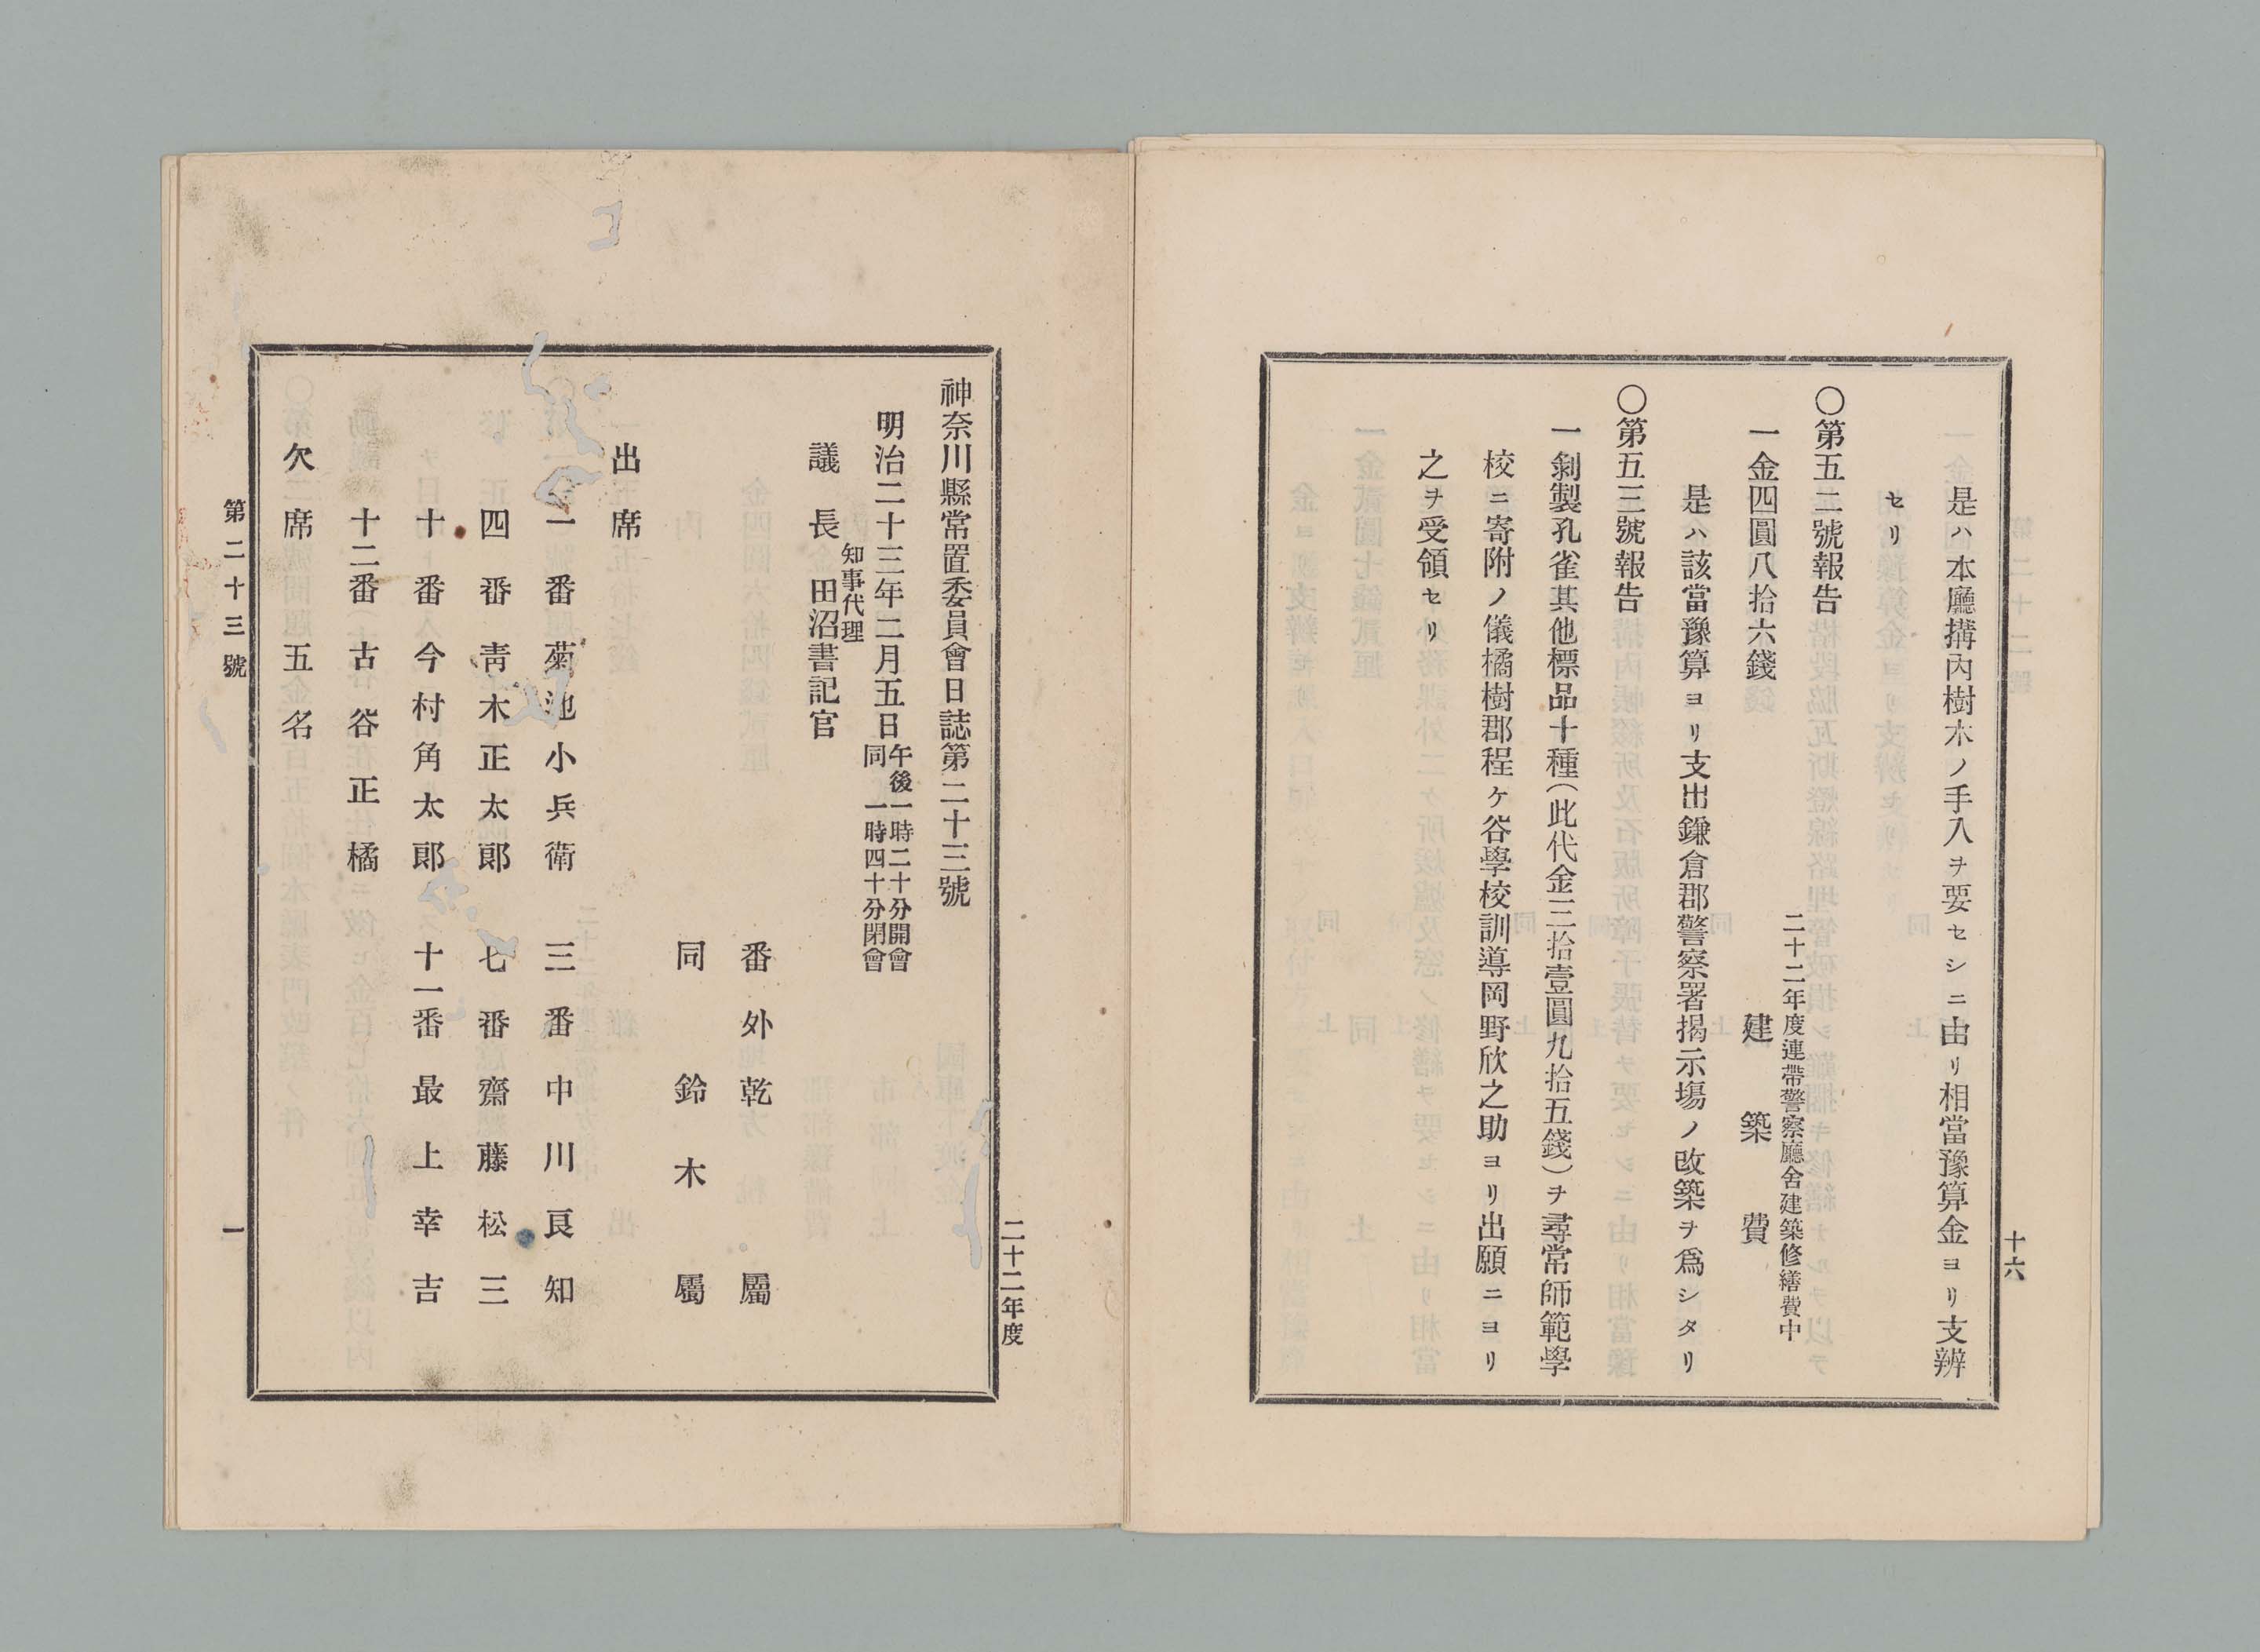 十六
是ハ本廳搆內樹木ノ手入ヲ要セシニ由リ相當豫算金ヨリ支辨
セリ
〇第五二號報告
二十二年度連帶警察廳舍建築修繕費中
一金四圓八拾六錢　建築費
是ハ該當豫算ヨリ支出鎌倉郡警察署揭示塲ノ改築ヲ爲シタリ
〇第五三號報告
一剝製孔雀其他標品十種(此代金三拾壹圓九拾五錢)ヲ尋常師範學
校ニ寄附ノ儀橘樹郡程ケ谷學校訓導岡野欣之助ヨリ出願ニヨリ
之ヲ受領セリ
二十二年度
神奈川縣常置委員會日誌第二十三號
明治二十三年二月五日
午後一時二十分開會
同　一時四十分閉會
知事代理
議長　田沼書記官
番外乾　屬
同　鈴木　屬
出席
一番　菊池小兵衛　三番　中川良知
四番　靑木正太郎　七番　齋藤松三
十番　今村角太郎　十一番　最上幸吉
十二番　古谷正橘
欠席　五名
第二十三號
一